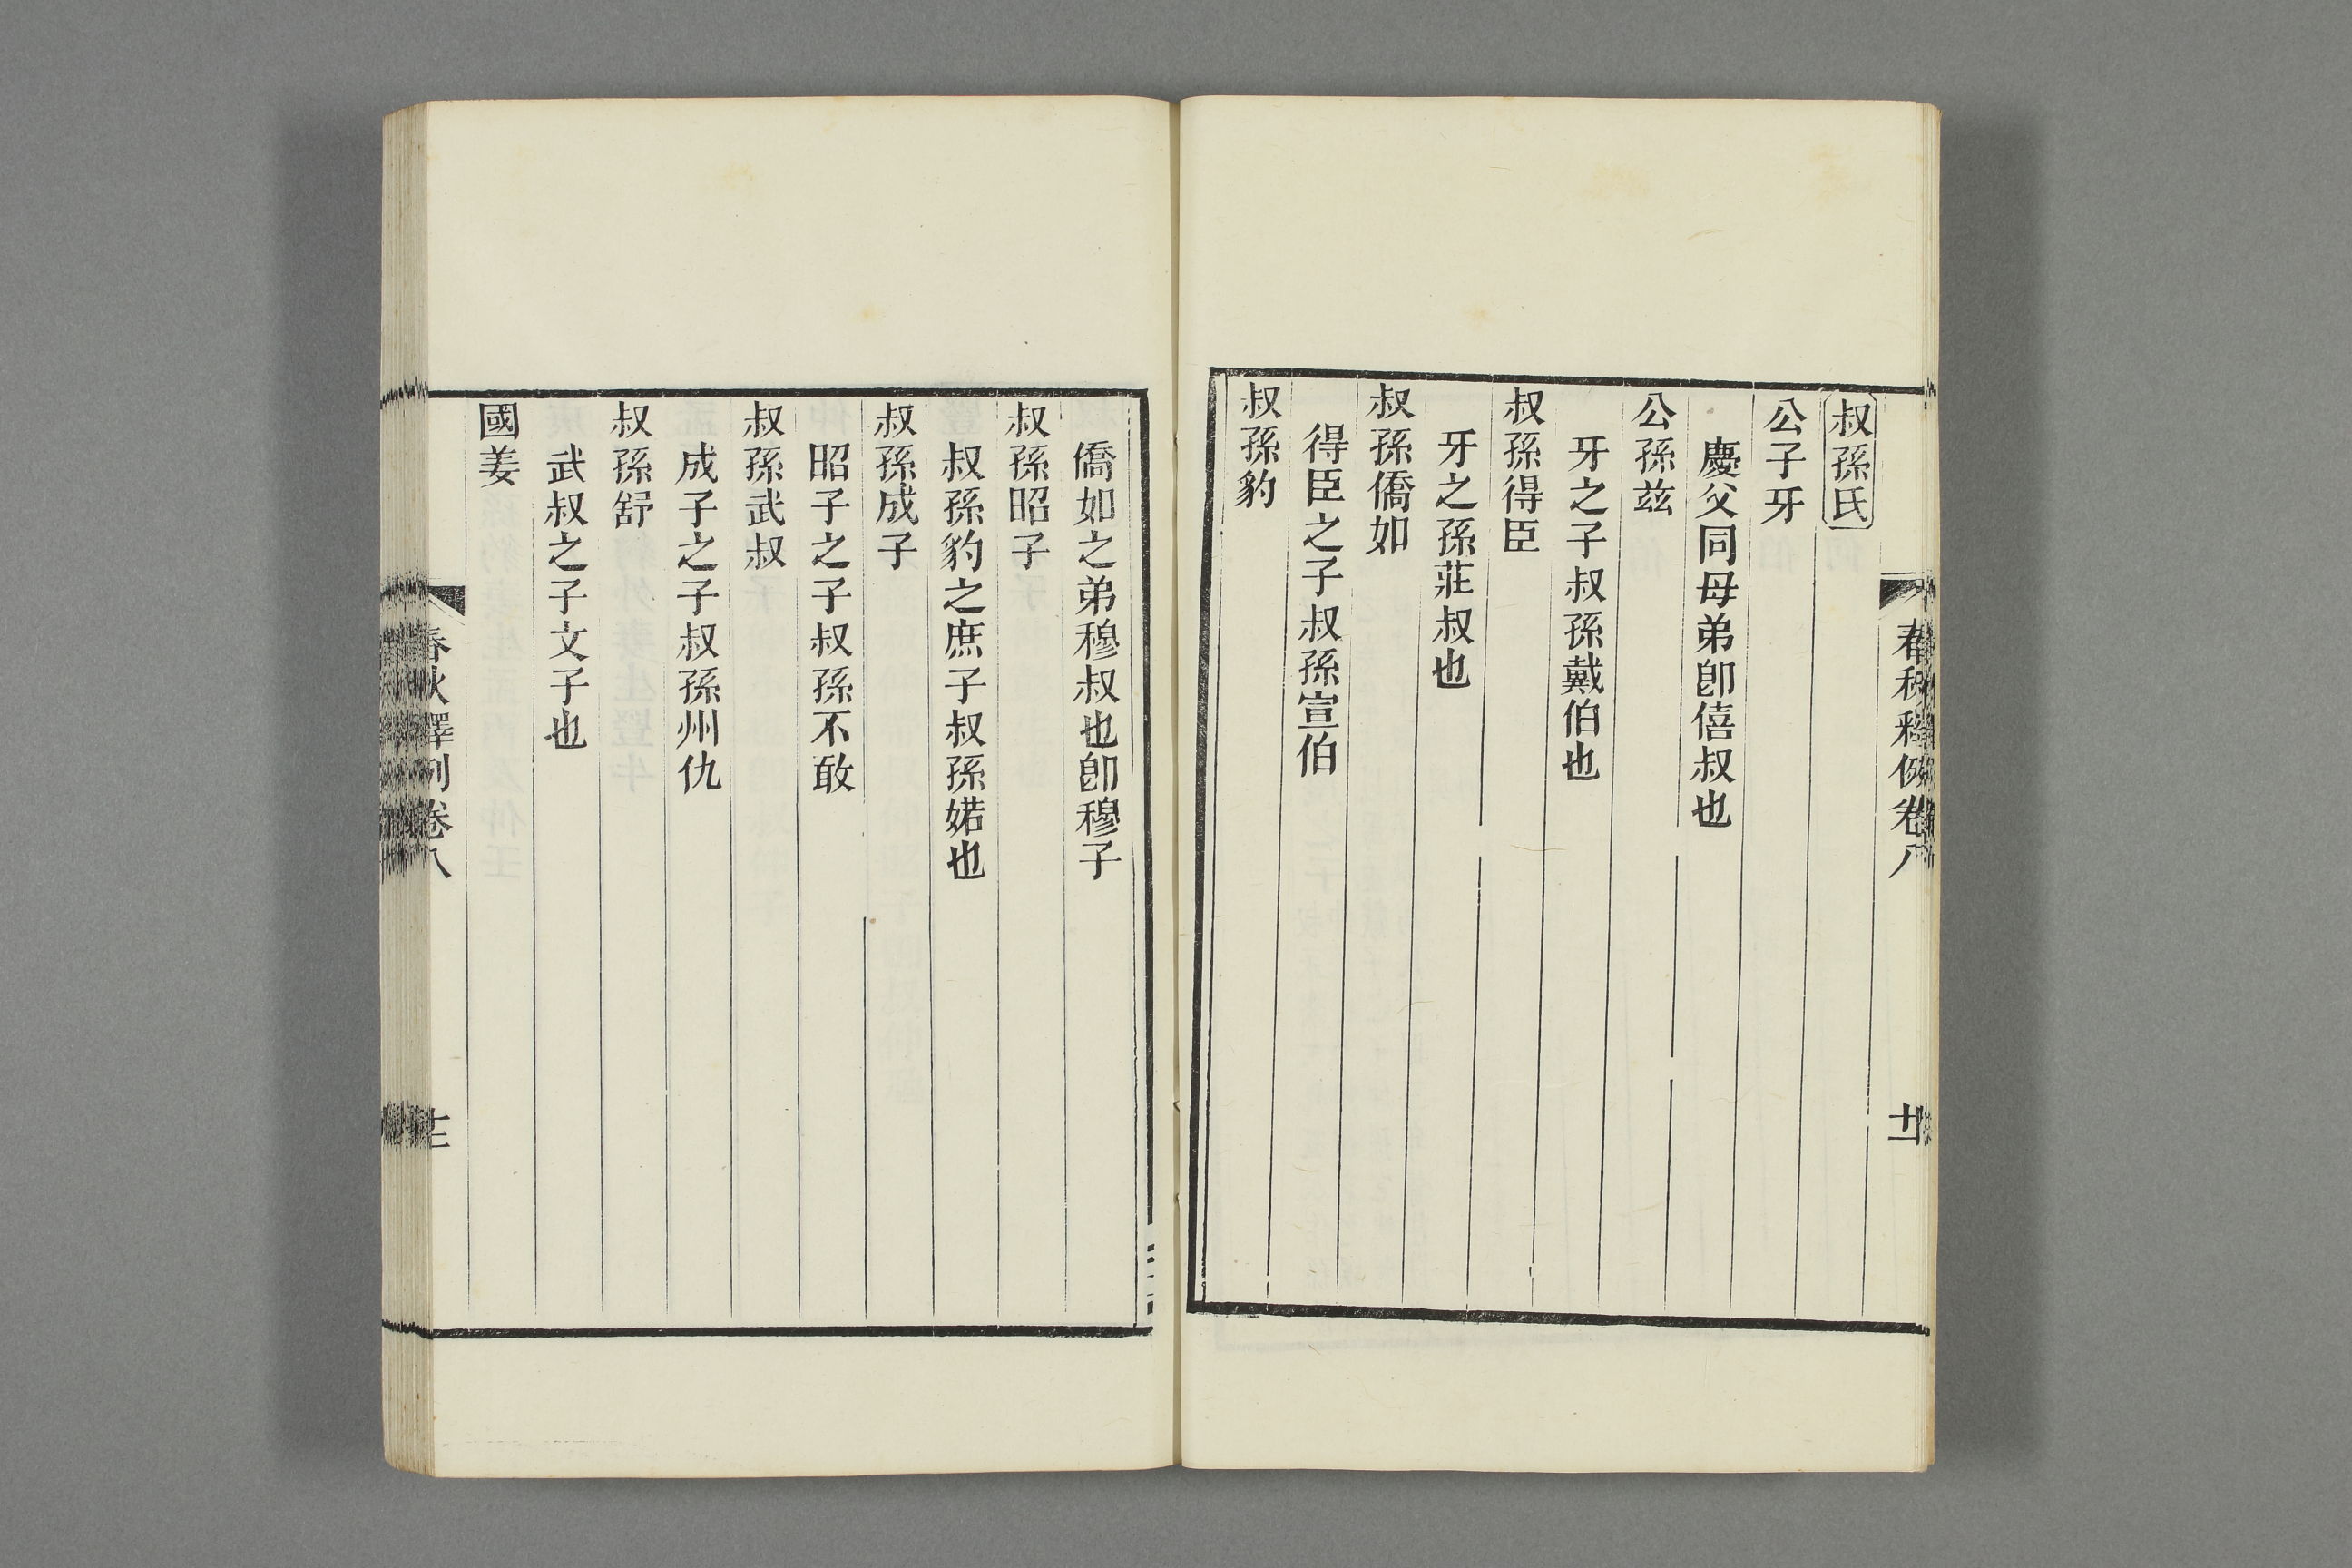 春秋釋例卷八
叔孫氏
公子牙
慶父同母弟卽僖叔也
公孫茲
牙之子叔孫戴伯也
叔孫得臣
牙之孫莊叔也
叔孫僑如
得臣之子叔孫宣伯
叔孫豹
僑如之弟穆叔也卽穆子
叔孫昭子
叔孫豹之庶子叔孫婼也
叔孫成子
昭子之子叔孫不敢
叔孫武叔
成子之子叔孫州仇
叔孫舒
武叔之子文子也
國姜
春秋釋例卷八